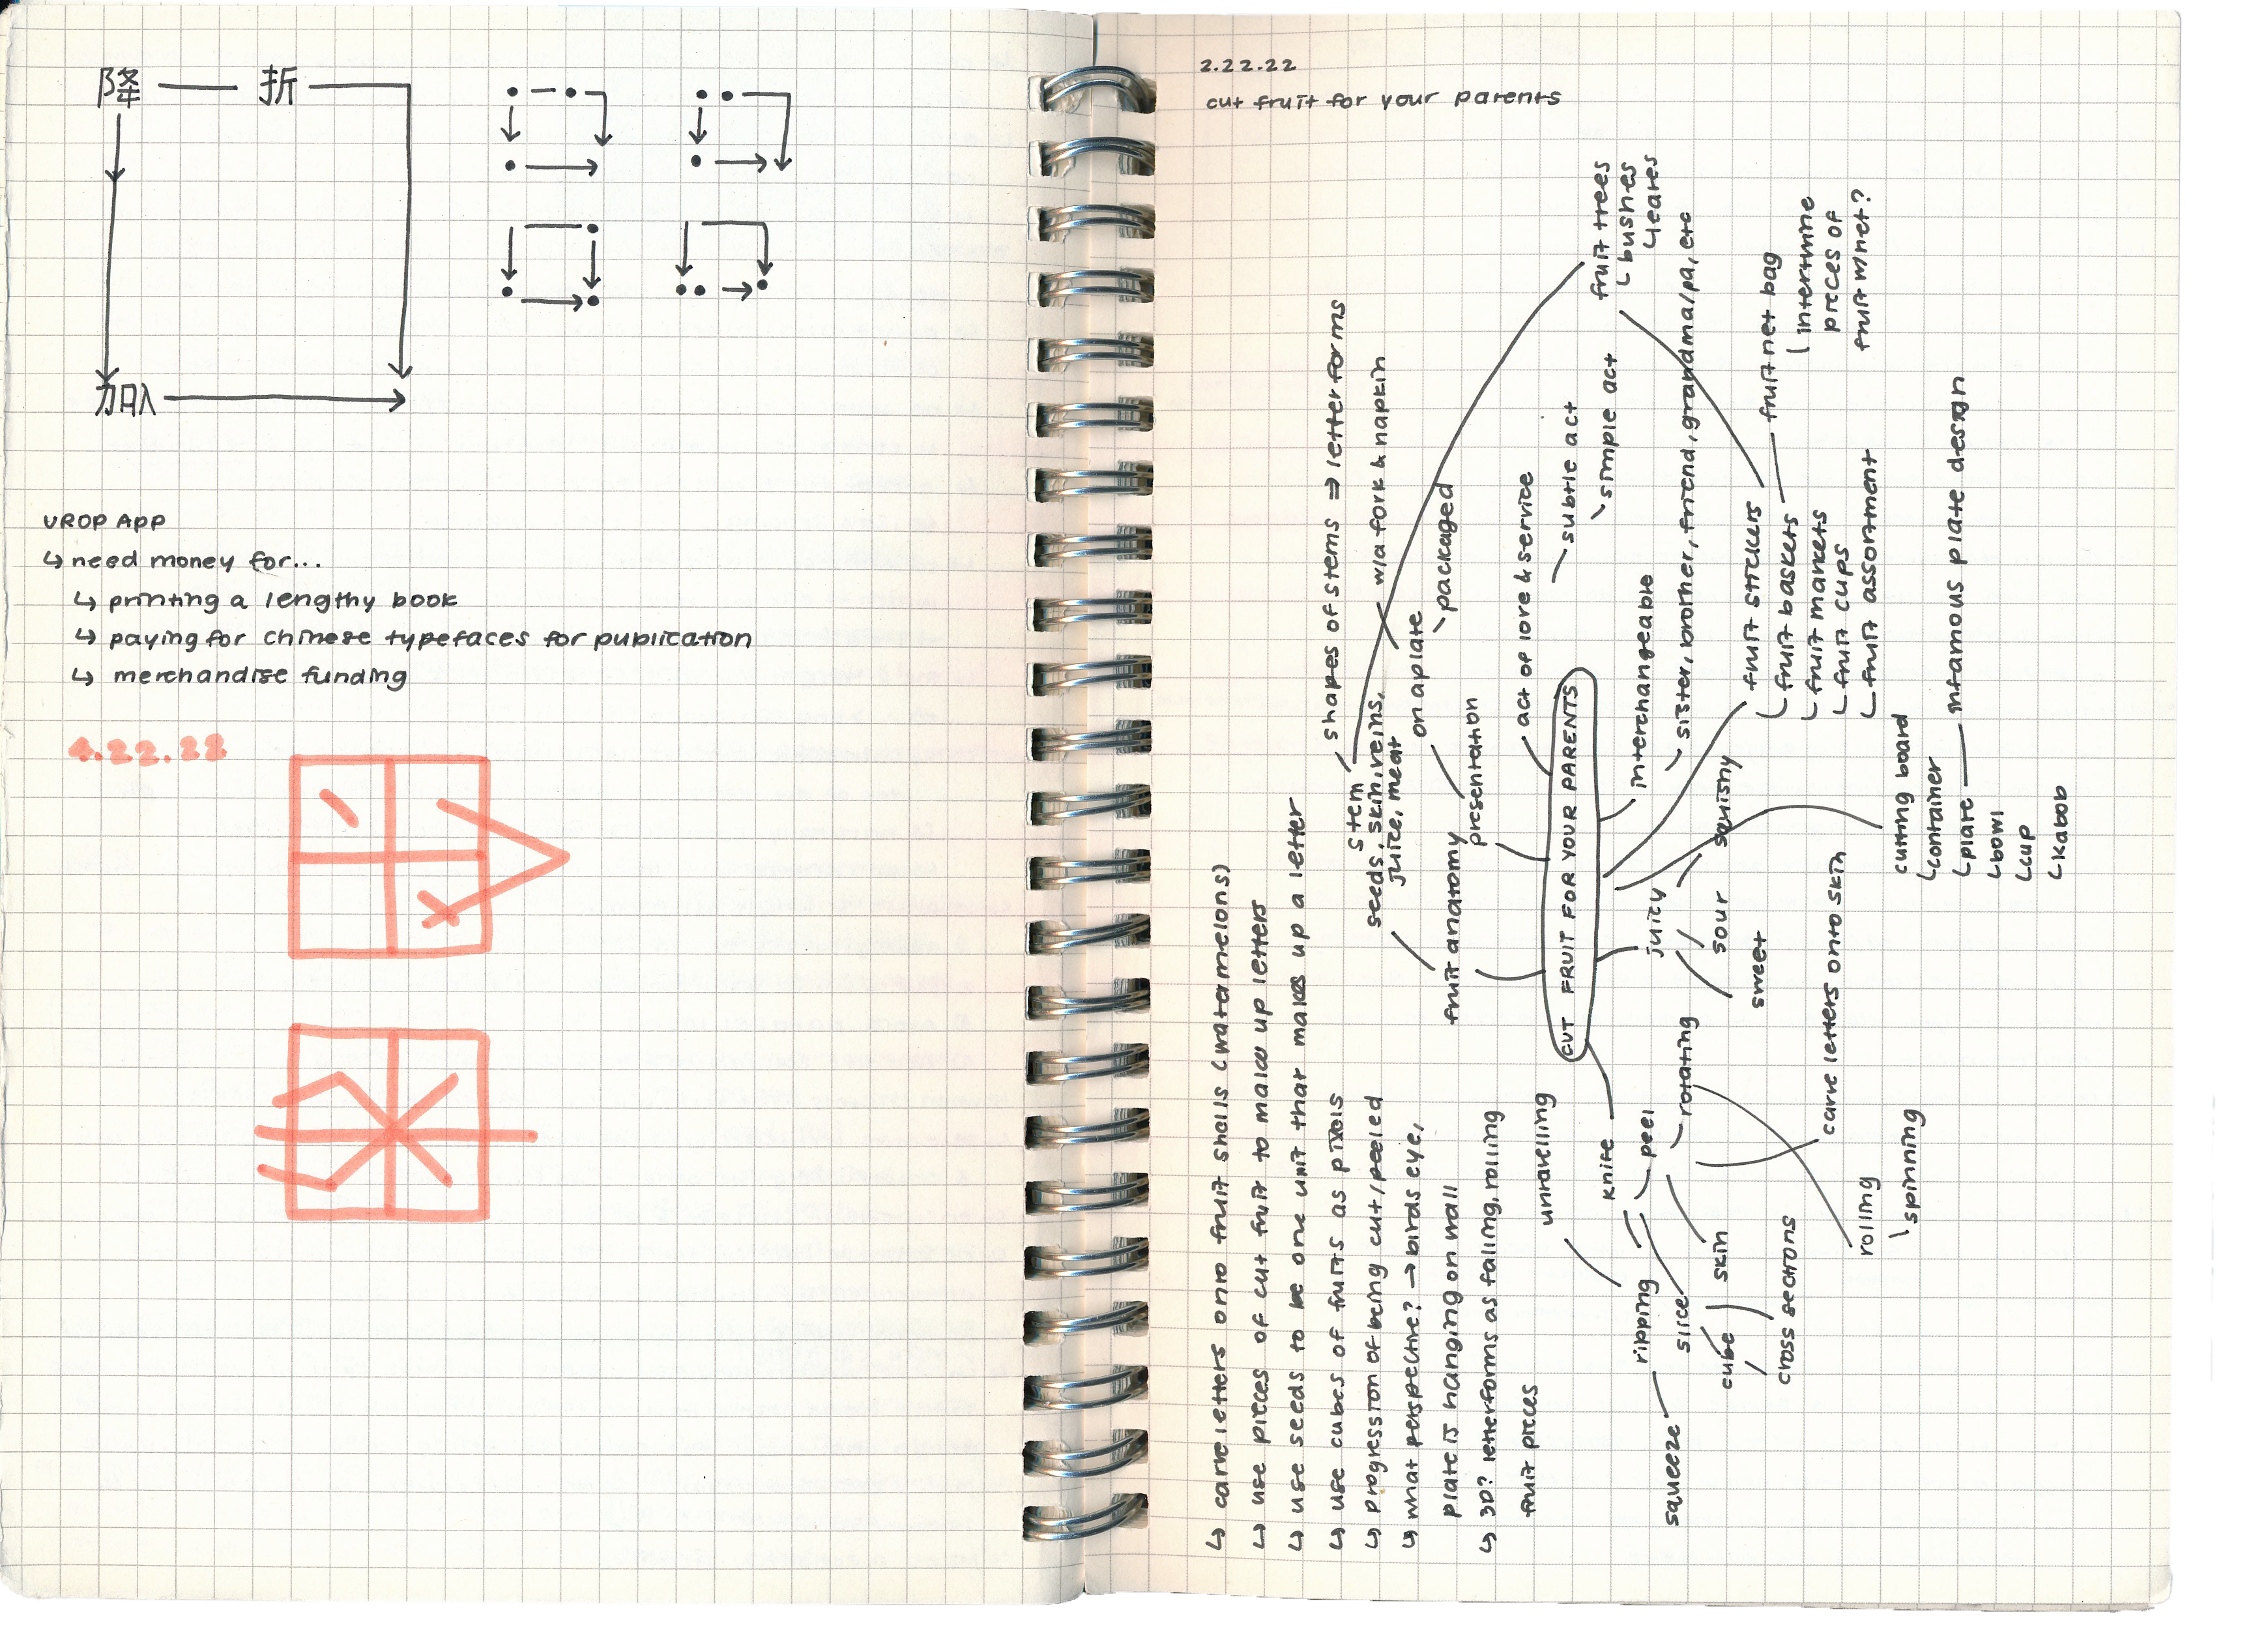 降 — 折
加队
UROP APP
↳ need money for...
↳ printing a lengthy book
↳ paying for chinese typefaces for publication
↳ merchandise funding
4.22.22
2.22.22
cut fruit for your parents
↳ carve letters onto fruit shells (watermelons)
↳ use pieces of cut fruit to make up letters
↳ use seeds to be one unit that makes up a letter
↳ use cubes of fruits as pixels
↳ progression of being cut/peeled
↳ what perspective? → birds eye,
plate is hanging on wall
↳ 3D? letterforms as falling, rolling
fruit pieces
CUT FRUIT FOR YOUR PARENTS
fruit anatomy
stem
seeds, skin, veins,
juice, meat
shapes of stems ⇒ letter forms
presentation
on a plate
w/a fork & napkin
packaged
act of love & service
subtle act
simple act
interchangeable
sister, brother, friend, grandma/pa, etc
fruit trees
bushes
leaves
fruit stickers
fruit baskets
fruit markets
fruit cups
fruit assortment
fruit net bag
intertwine
pieces of
fruit w/net?
cutting board
container
plate
bowl
cup
kabob
infamous plate design
juicy
squishy
sour
sweet
knife
peel
rotating
rolling
spinning
carve letters onto skin
skin
slice
cube
cross sections
ripping
unravelling
squeeze